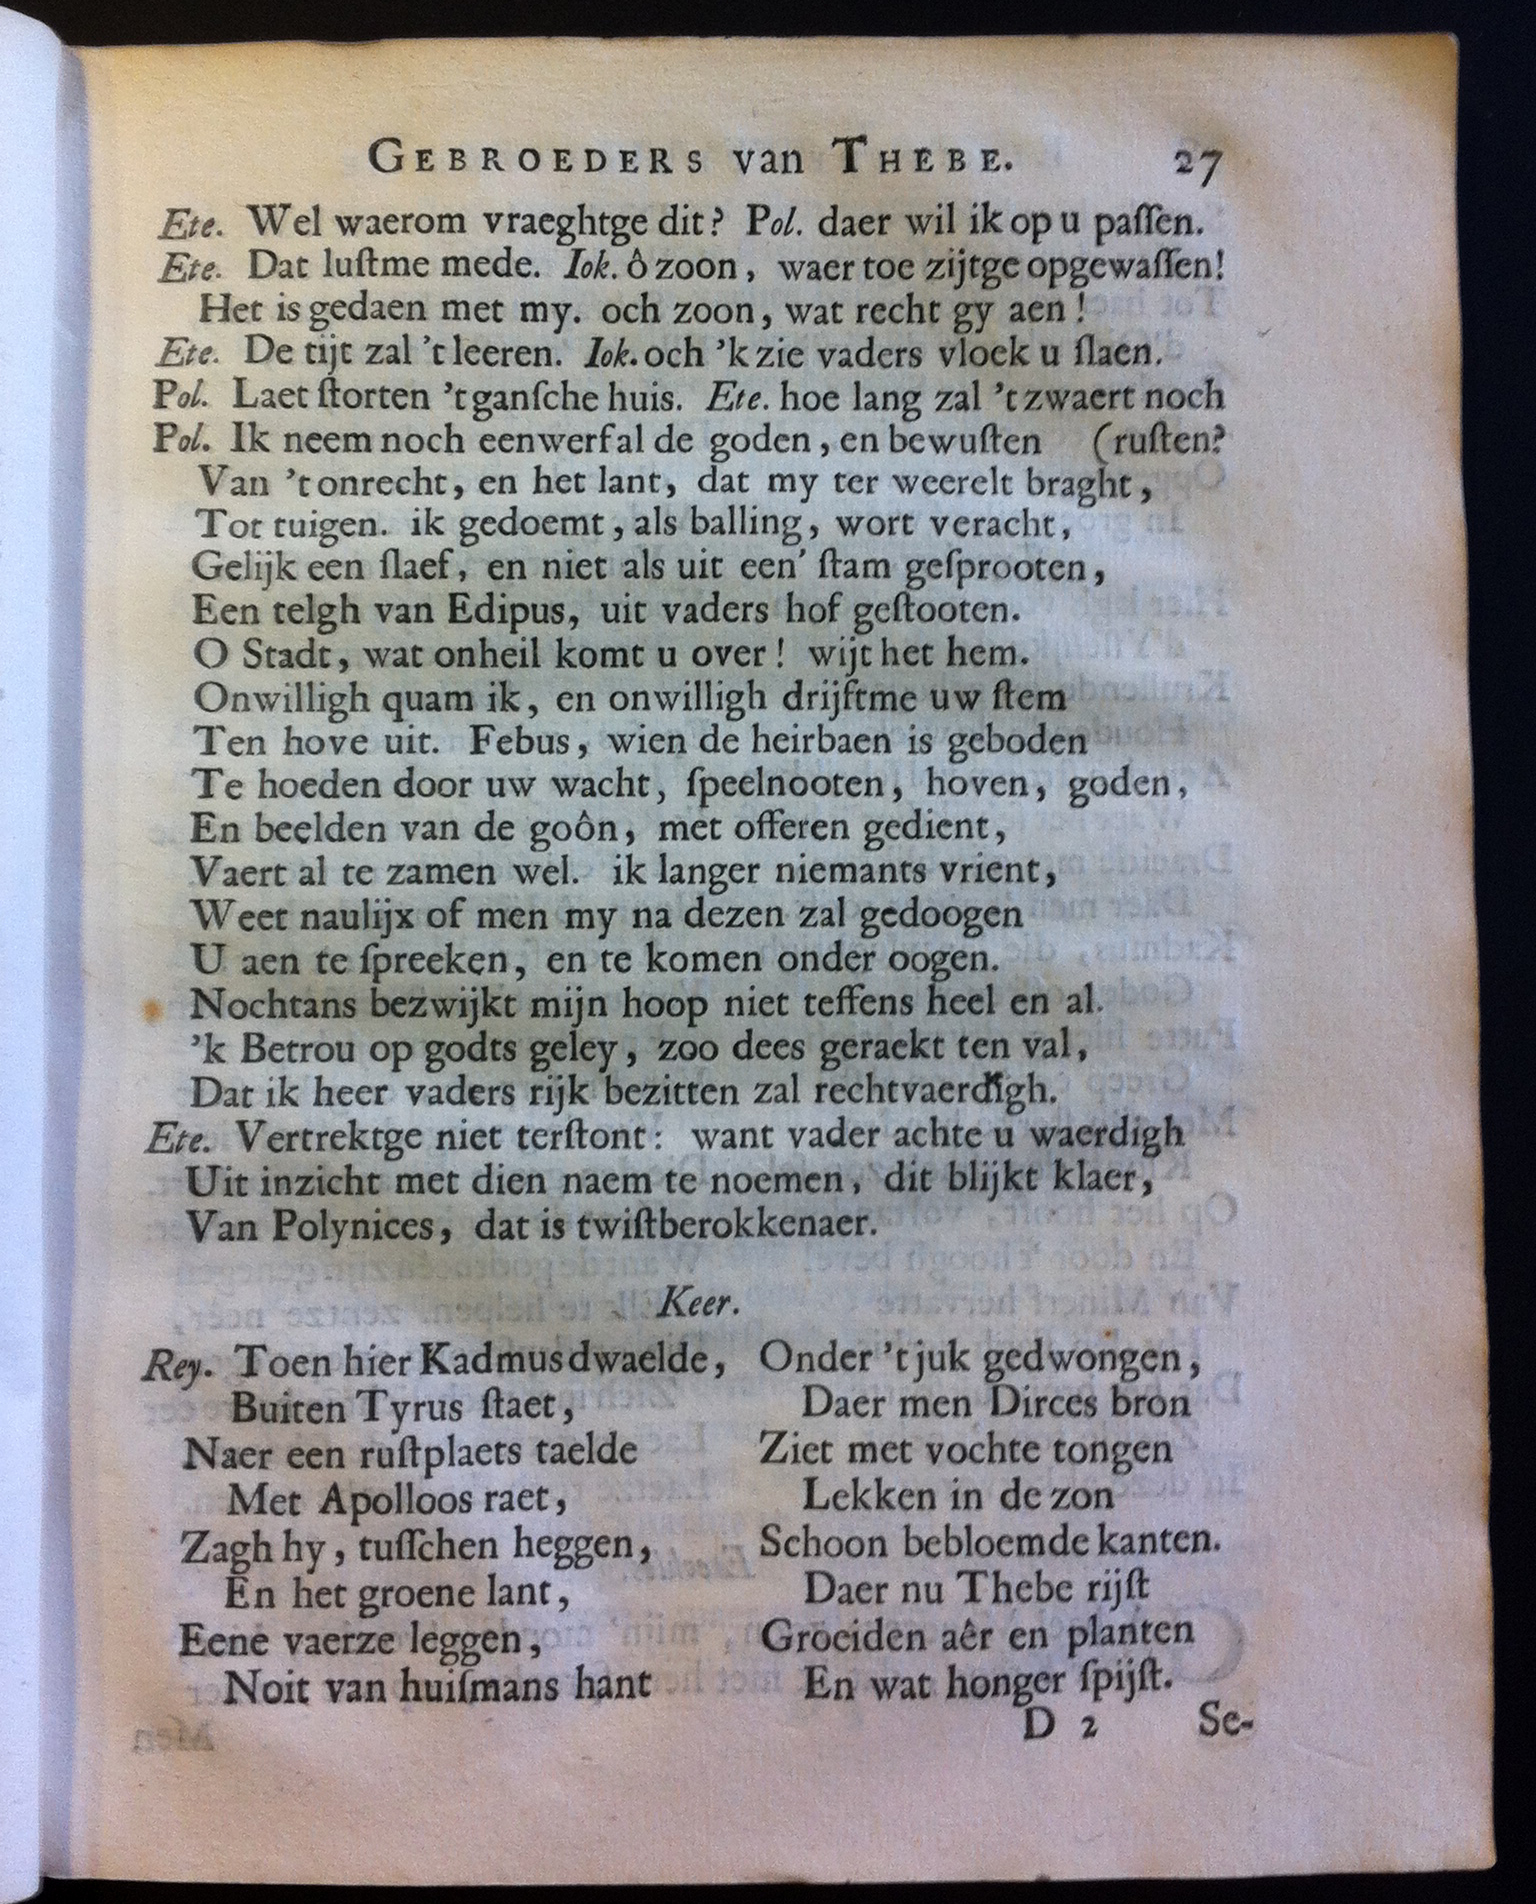 GEBROEDERS van THEBE. 27
Ete. Wel waerom vraeghtge dit? Pol. daer wil ik op u paſſen.
Ete. Dat luſtme mede. Iok. ô zoon, waer toe zijtge opgewaſſen!
Het is gedaen met my. och zoon, wat recht gy aen!
Ete. De tijt zal 't leeren. Iok. och 'k zie vaders vloek u ſlaen.
Pol. Laet ſtorten 't ganſche huis. Ete. hoe lang zal 't zwaert noch
Pol. Ik neem noch eenwerf al de goden, en bewuſten (ruſten?
Van 't onrecht, en het lant, dat my ter weerelt braght,
Tot tuigen. ik gedoemt, als balling, wort veracht,
Gelijk een ſlaef, en niet als uit een' ſtam geſprooten,
Een telgh van Edipus, uit vaders hof geſtooten.
O Stadt, wat onheil komt u over! wijt het hem.
Onwilligh quam ik, en onwilligh drijftme uw ſtem
Ten hove uit. Febus, wien de heirbaen is geboden
Te hoeden door uw wacht, ſpeelnooten, hoven, goden,
En beelden van de goôn, met offeren gedient,
Vaert al te zamen wel. ik langer niemants vrient,
Weet naulijx of men my na dezen zal gedoogen
U aen te ſpreeken, en te komen onder oogen.
Nochtans bezwijkt mijn hoop niet teffens heel en al.
'k Betrou op godts geley, zoo dees geraekt ten val,
Dat ik heer vaders rijk bezitten zal rechtvaerdigh.
Ete. Vertrektge niet terſtont: want vader achte u waerdigh
Uit inzicht met dien naem te noemen, dit blijkt klaer,
Van Polynices, dat is twiſtberokkenaer.
Keer.
Rey. Toen hier Kadmus dwaelde,
Buiten Tyrus ſtaet,
Naer een ruſtplaets taelde
Met Apolloos raet,
Zagh hy, tuſſchen heggen,
En het groene lant,
Eene vaerze leggen,
Noit van huiſmans hant
Onder 't juk gedwongen,
Daer men Dirces bron
Ziet met vochte tongen
Lekken in de zon
Schoon bebloemde kanten.
Daer nu Thebe rijſt
Groeiden aêr en planten
En wat honger ſpijſt.
D 2 Se-